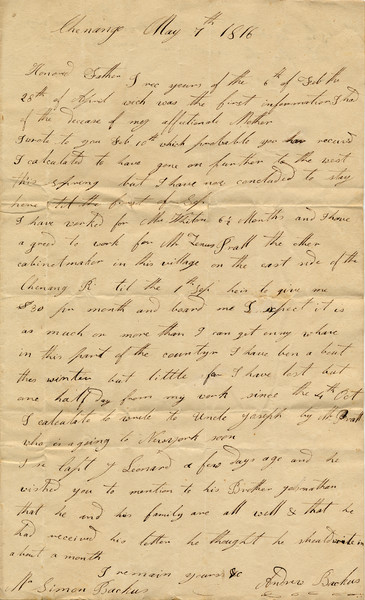 Chenango May 7th 1816
Honored Father I rec yours of the 6th of Feb the
28th of April wech was the first information I had
of the decease of my affectionate Mother
I wrote to you Feb 10th which probable you have receivd
I calculated to have gone on further to the west
this spring but I have now concluded to stay
here til the first of Sep
I have worked for Mr Whiton 6½ Months and I have
agreed to work for Mr Zenas Pratt the other
cabinetmaker in this village on the east side of the
Chenang R til the 1st Sep heis to give me
$30 per month and board me I expect it is
as much or more than I can get enny whare
in this part of the country I have ben a bout
this winter but little for I have lost but
one half Day from my work since the 4th Oct
I calculate to write to Uncle Joseph by Mr Pratt
who is a going to Newyork soon
I see Capt Leonard a few days ago and he
wished you to mantion to his Brother Jonnathan
that he and his family are all well & that he
had received his letter he thought he should write in
about a month
I remain yours &c
Mr Simon Backus Andrew Backus